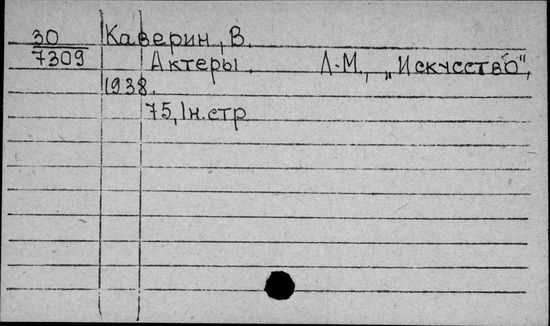 30 Каверин, В.
7309 Актеры. Л-М., „Искусство",
1938.
75, 1н.стр